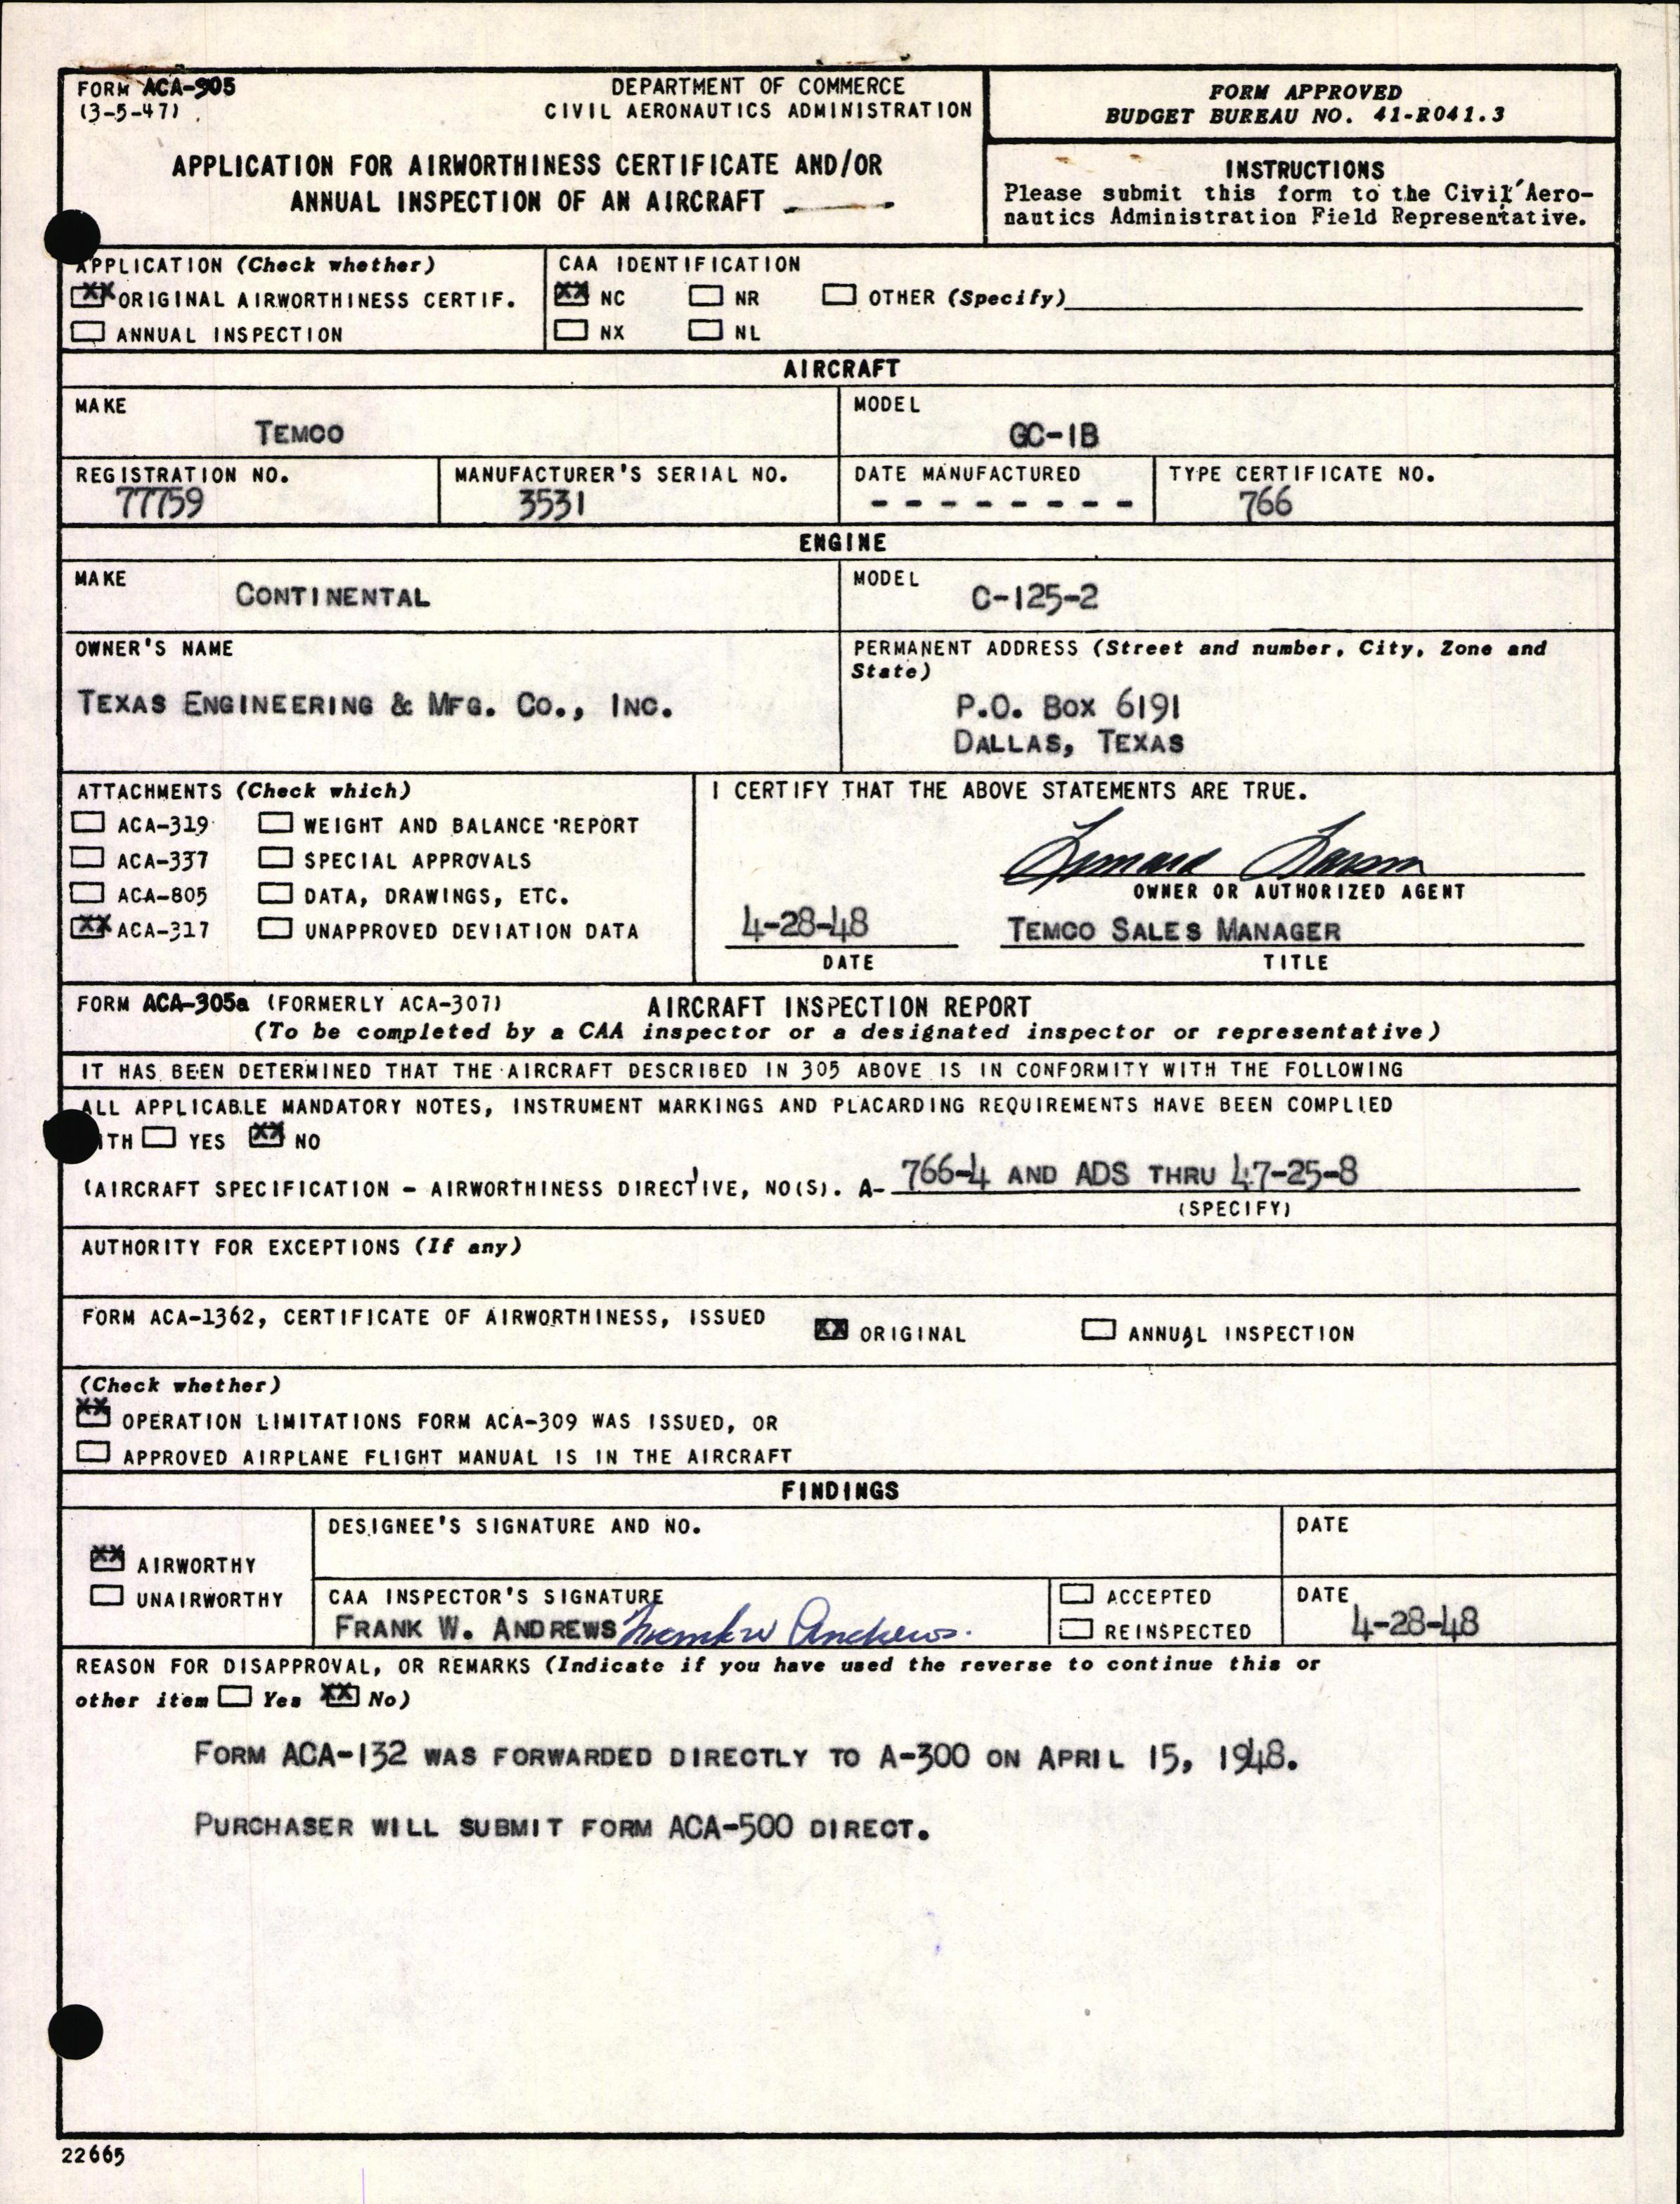 FORM ACA-305
(3-5-47)
DEPARTMENT OF COMMERCE
CIVIL AERONAUTICS ADMINISTRATION
APPLICATION FOR AIRWORTHINESS CERTIFICATE AND/OR
ANNUAL INSPECTION OF AN AIRCRAFT
FORM APPROVED
BUDGET BUREAU NO. 41-R041.3
INSTRUCTIONS
Please submit this form to the Civil Aero-
nautics Administration Field Representative.
APPLICATION (Check whether)
XX ORIGINAL AIRWORTHINESS CERTIF.
ANNUAL INSPECTION
CAA IDENTIFICATION
XX NC NR OTHER (Specify)
NX NL
AIRCRAFT
MAKE
TEMCO
MODEL
GC-1B
REGISTRATION NO.
77759
MANUFACTURER'S SERIAL NO.
3531
DATE MANUFACTURED
- - - - - - - -
TYPE CERTIFICATE NO.
766
ENGINE
MAKE
CONTINENTAL
MODEL
C-125-2
OWNER'S NAME
TEXAS ENGINEERING & MFG. CO., INC.
PERMANENT ADDRESS (Street and number, City, Zone and
State)
P.O. BOX 6191
DALLAS, TEXAS
ATTACHMENTS (Check which)
ACA-319 WEIGHT AND BALANCE REPORT
ACA-337 SPECIAL APPROVALS
ACA-805 DATA, DRAWINGS, ETC.
XX ACA-317 UNAPPROVED DEVIATION DATA
I CERTIFY THAT THE ABOVE STATEMENTS ARE TRUE.
OWNER OR AUTHORIZED AGENT
4-28-48 TEMCO SALES MANAGER
DATE TITLE
FORM ACA-305a (FORMERLY ACA-307) AIRCRAFT INSPECTION REPORT
(To be completed by a CAA inspector or a designated inspector or representative)
IT HAS BEEN DETERMINED THAT THE AIRCRAFT DESCRIBED IN 305 ABOVE IS IN CONFORMITY WITH THE FOLLOWING
ALL APPLICABLE MANDATORY NOTES, INSTRUMENT MARKINGS AND PLACARDING REQUIREMENTS HAVE BEEN COMPLIED
ITH YES XX NO
(AIRCRAFT SPECIFICATION - AIRWORTHINESS DIRECTIVE, NO(S). A- 766-4 AND ADS THRU 47-25-8
(SPECIFY)
AUTHORITY FOR EXCEPTIONS (If any)
FORM ACA-1362, CERTIFICATE OF AIRWORTHINESS, ISSUED XX ORIGINAL ANNUAL INSPECTION
(Check whether)
XX OPERATION LIMITATIONS FORM ACA-309 WAS ISSUED, OR
APPROVED AIRPLANE FLIGHT MANUAL IS IN THE AIRCRAFT
FINDINGS
XX AIRWORTHY
UNAIRWORTHY
DESIGNEE'S SIGNATURE AND NO.
DATE
CAA INSPECTOR'S SIGNATURE
FRANK W. ANDREWS Frank W Andrews.
ACCEPTED
REINSPECTED
DATE
4-28-48
REASON FOR DISAPPROVAL, OR REMARKS (Indicate if you have used the reverse to continue this or
other item Yes XX No)
FORM ACA-132 WAS FORWARDED DIRECTLY TO A-300 ON APRIL 15, 1948.
PURCHASER WILL SUBMIT FORM ACA-500 DIRECT.
22665